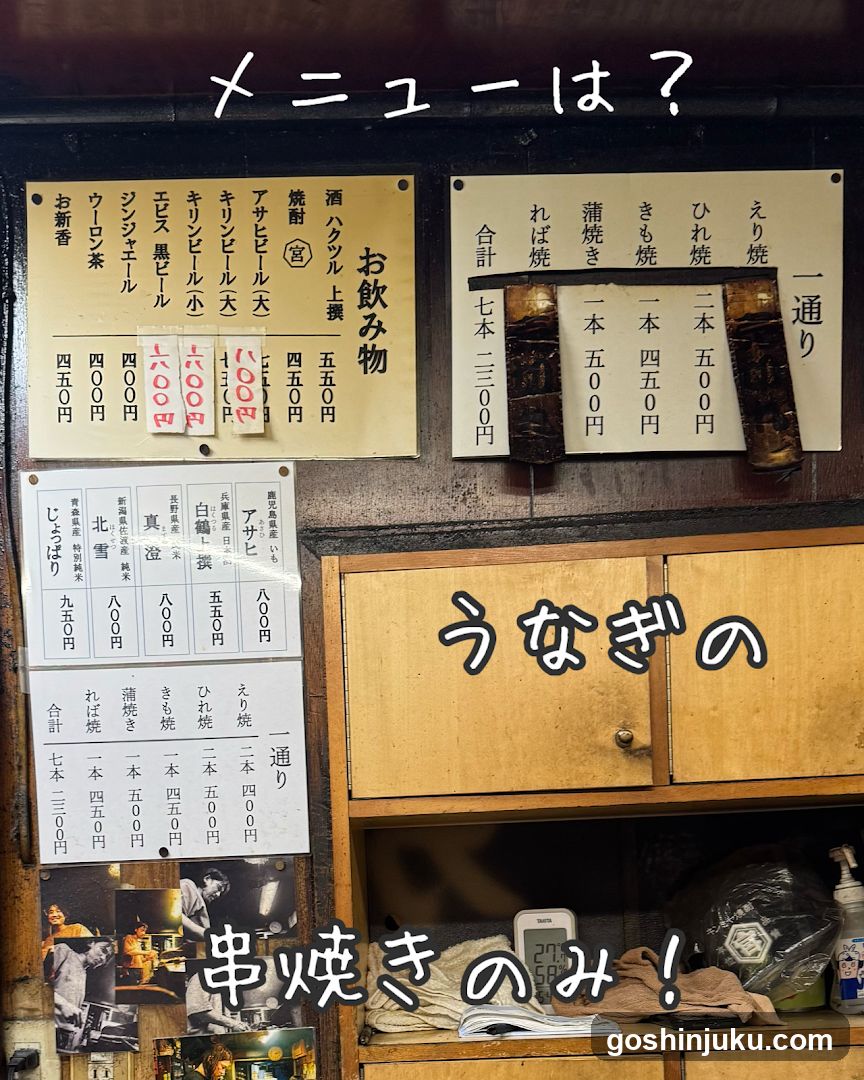 メニューは？
お飲み物
酒 ハクツル 上撰 五五〇円
焼酎 宮 四五〇円
アサヒビール(大) 七五〇円
八〇〇円
キリンビール(大)
キリンビール(小) 六〇〇円
エビス 黒ビール 六〇〇円
ジンジャエール 四〇〇円
ウーロン茶 四〇〇円
お新香 四五〇円
一通り
えり焼
ひれ焼 二本 五〇〇円
きも焼 一本 四五〇円
蒲焼き 一本 五〇〇円
れば焼
合計 七本 二三〇〇円
鹿児島県産 いも
アサヒ あさひ 八〇〇円
兵庫県産 日本
白鶴上撰 はくつる 五五〇円
長野県産 米
真澄 八〇〇円
新潟県佐渡産 純米
北雪 ほくせつ 八〇〇円
青森県産 特別純米
じょっぱり 九五〇円
一通り
えり焼 二本 四〇〇円
ひれ焼 二本 五〇〇円
きも焼 一本 四五〇円
蒲焼き 一本 五〇〇円
れば焼 一本 四五〇円
合計 七本 二三〇〇円
うなぎの
串焼きのみ！
TANITA
goshinjuku.com